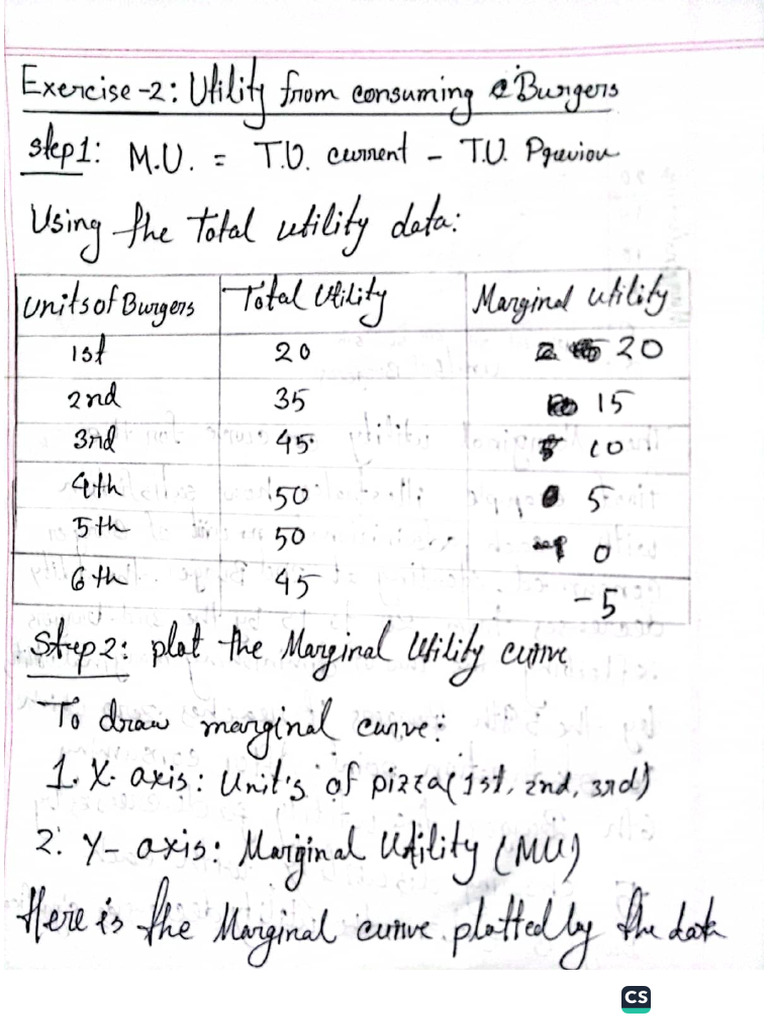 Exercise-2: Utility from consuming Burgers
step1: M.U. = T.U. current - T.U. Previou
Using the total utility data:
Units of Burgers Total Utility Marginal utility
1st 20 20
2nd 35 15
3rd 45 10
4th 50 5
5th 50 0
6th 45 -5
Step2: plot the Marginal Utility curve
To draw marginal curve:
1. X- axis: Unit's of pizza(1st, 2nd, 3rd)
2. Y- axis: Marginal Utility (MU)
Here is the Marginal curve plotted by the data
CS